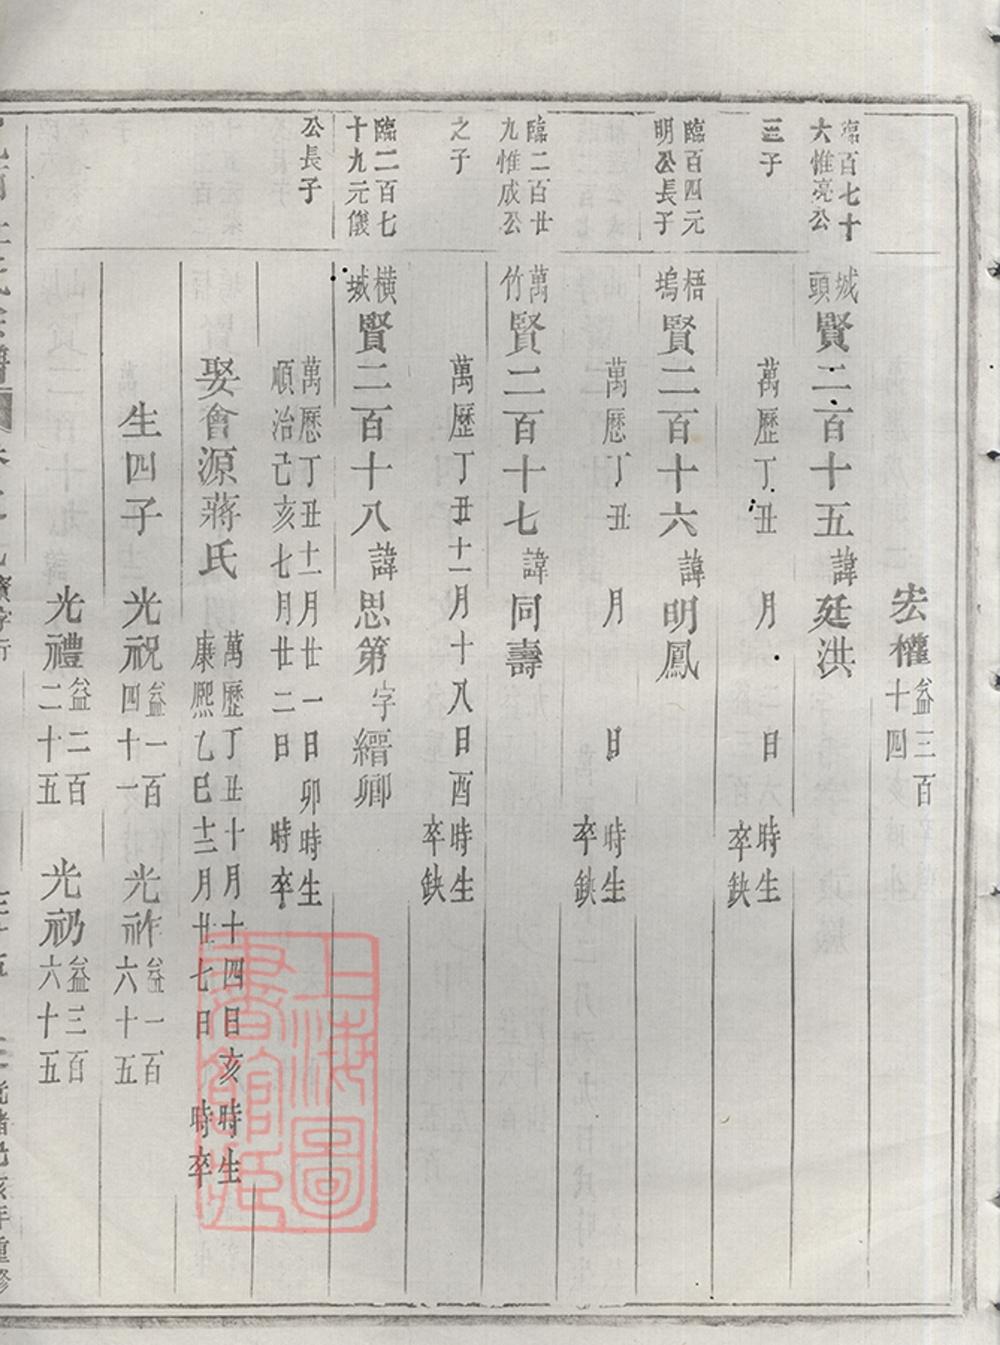 宏權益三百十四
臨百七十六惟亮公
城頭賢二百十五諱廷洪
三子
萬歷丁丑 月 日 時生卒缺
臨百四元明公長子
梧塢賢二百十六諱明鳳
萬歷丁丑 月 日 時生卒缺
臨二百廿九惟成公
萬竹賢二百十七諱同壽
之子
萬歷丁丑十一月十八日酉時生卒缺
臨二百七十九元儀
橫城賢二百十八諱思第字縉卿
公長子
萬歷丁丑十一月廿一日卯時生
順治己亥七月廿二日 時卒
娶會源蔣氏
萬歷丁丑十月十四日亥時生
康熙乙巳十二月廿七日 時卒
生四子 光祝益一百四十一 光祚益一百六十五
光禮益二百二十五 光礽益三百六十五
光緒 亥年重修
上海圖書館藏